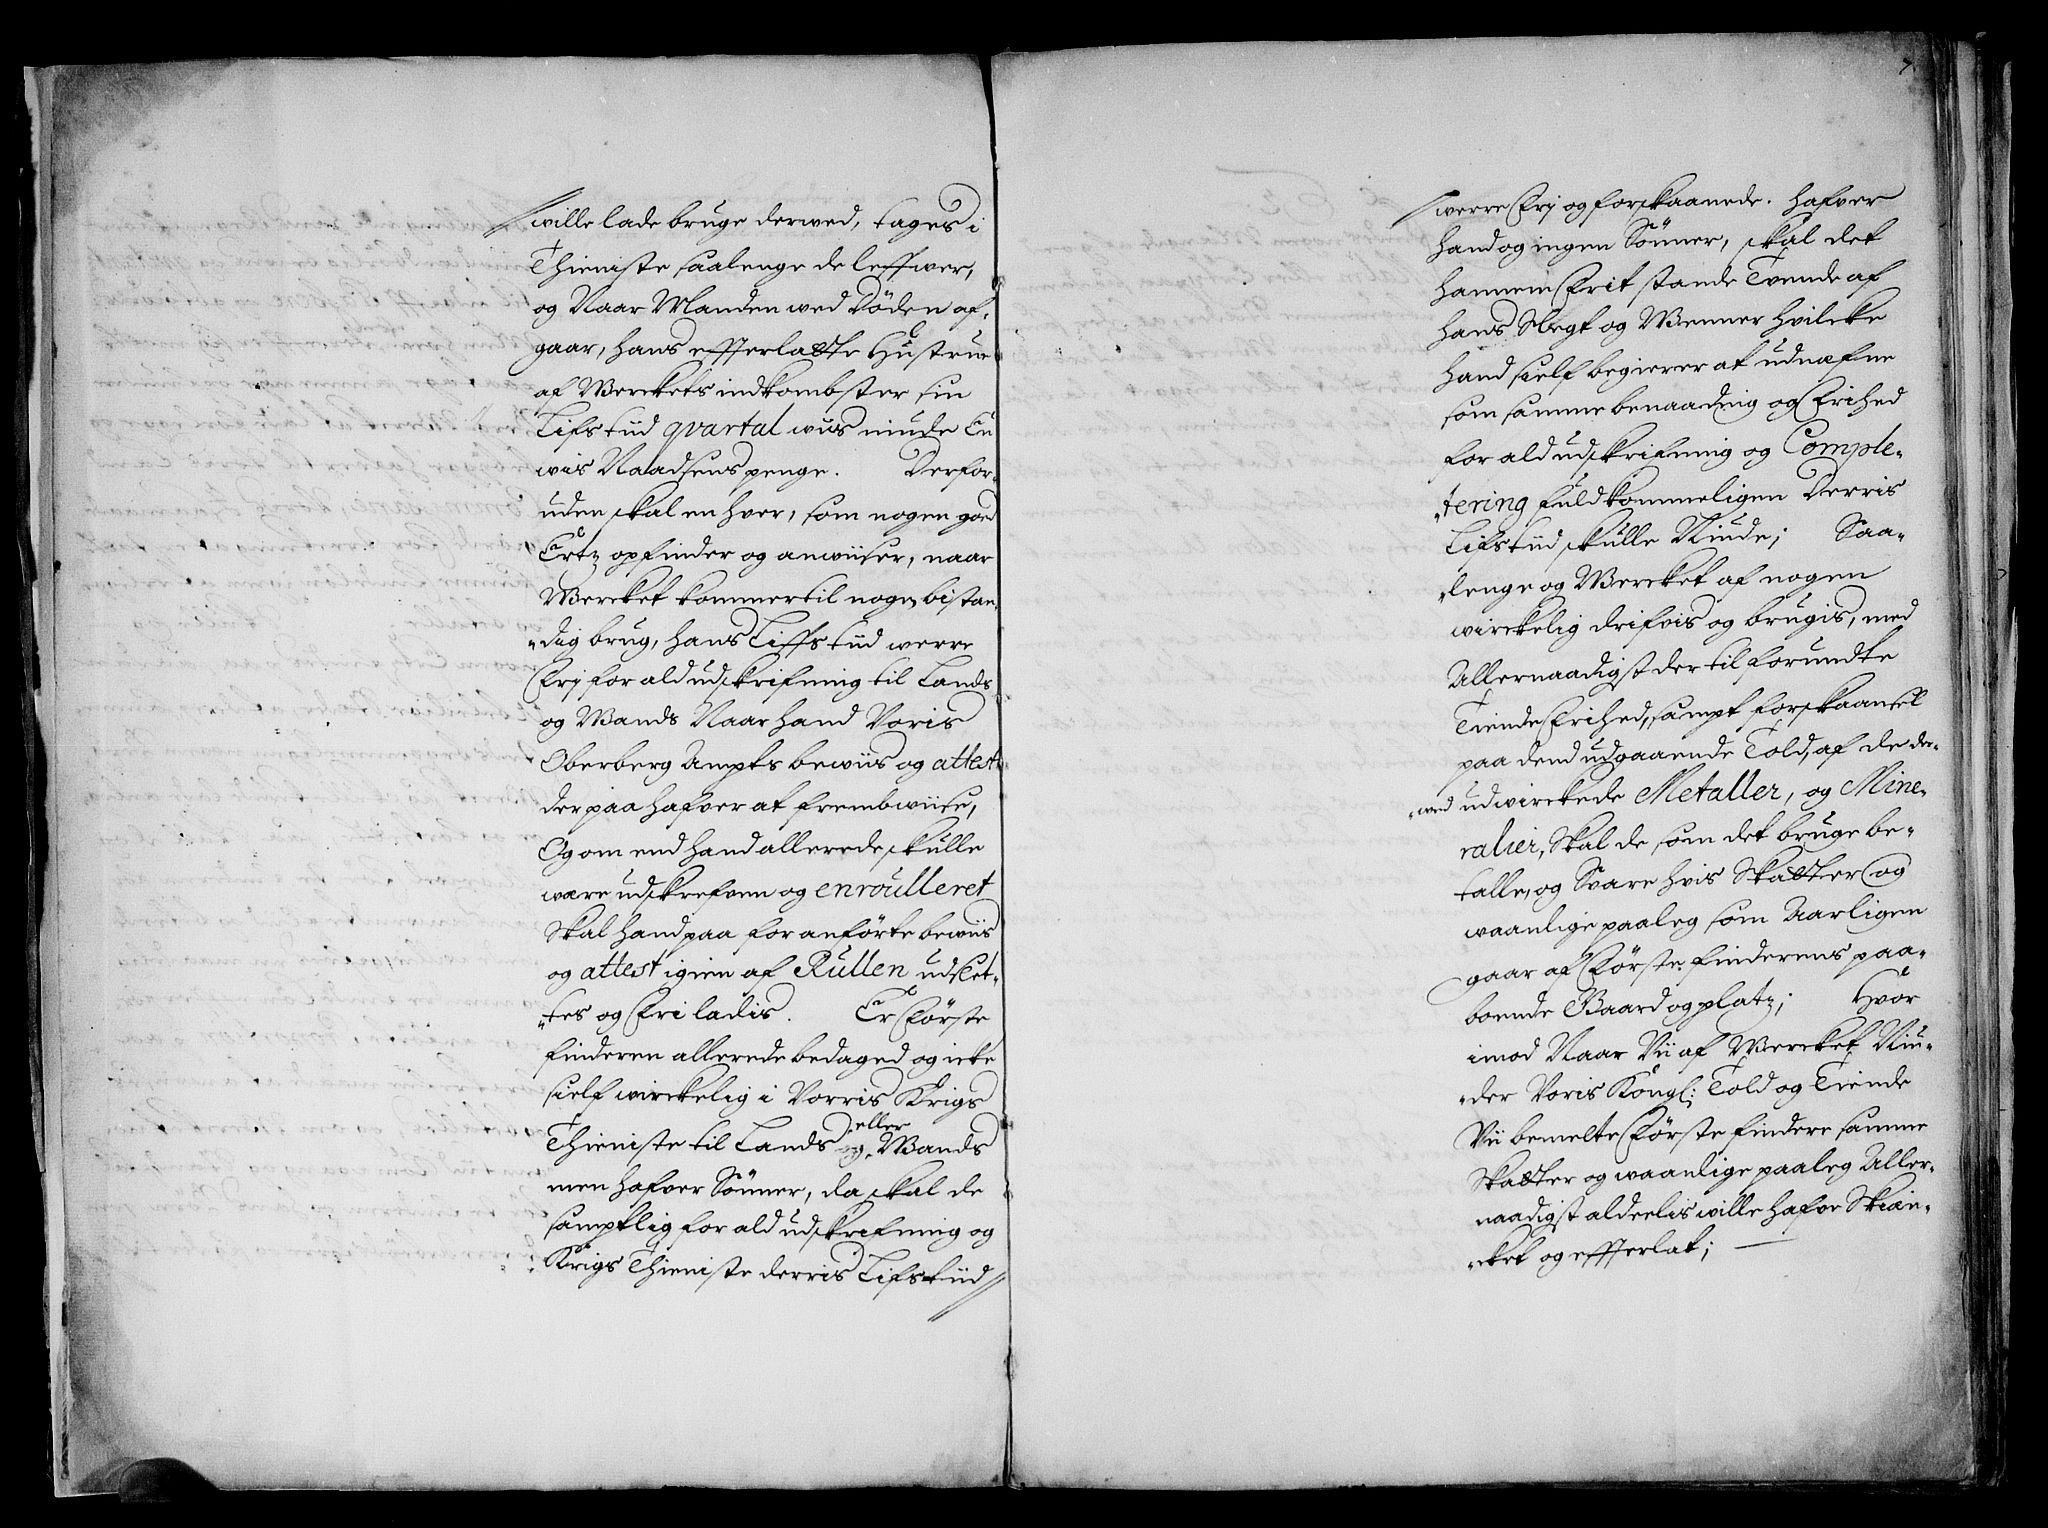 wille lade bruge derwed, tages i
Thieniste saalenge de leffwer,
og Naar Manden wed Döden af,
gaar, hans efterlatte Hustrue
af Werckets indkombster sin
Lifs tiid qvartal wiis niude En
wis Naadsens penge. Derfor-
uden skal en hver, som nogen goed
Ertz opfinder og anwiiser, naar
Wercket kommer til nogen bistan-
dig brug, hans Liffs tiid werre
Frj for ald udskrifning til Lands
og Wands Naar hand Voris
Oberberg Ampts bewiis og attest
der paa hafver at frembwiise,
Og om end hand allerede skulle
være udskrefven og enroulleret
Skal hand paa for anförte bewiis
og attest igien af Rullen udslet-
tes og Fri ladis. Er Förste
finderen allerede bedaged og icke
sielf wirckelig i Vorris Krigs
Thieniste til Lands og eller Wands
men hafver Sönner, da skal de
samptlig for ald udskrifning og
Krigs Thieniste derris Lifs tiid
7
werre Frj og forskaanede. Hafver
hand og ingen Sönner, skal det
hannem Frit stande Tvende af
hans Slegt og Wenner Hvilcke
hand sielf begierer at udnæfne
som samme benaading og Frihed
for ald udskrifning og Comple-
tering fuldkommeligen Derris
Lifs tiid skulle Niude; Saa-
lenge og Wercket af nogen
wirckelig drifvis og brugis, med
Allernaadigst der til forundte
Tiende Frihed, sampt forskaansel
paa dend udgaaende Told, af de der-
wed udwirckede Metaller, og Mine-
ralier, Skal de som det bruge be-
talle, og Svare hvis Skatter og
waanlige paaleg som Aarligen
gaar af Förste finderens paa-
boende Gaard og platz; Hvor
imod Naar Vii af Wercket Niu-
der Voris Kongl: Told og Tiende
Vii bemelte Förste findere samme
Skatter og waanlige paaleg Aller-
naadigst aldeelis wille hafve Skien-
cket og efterlat;